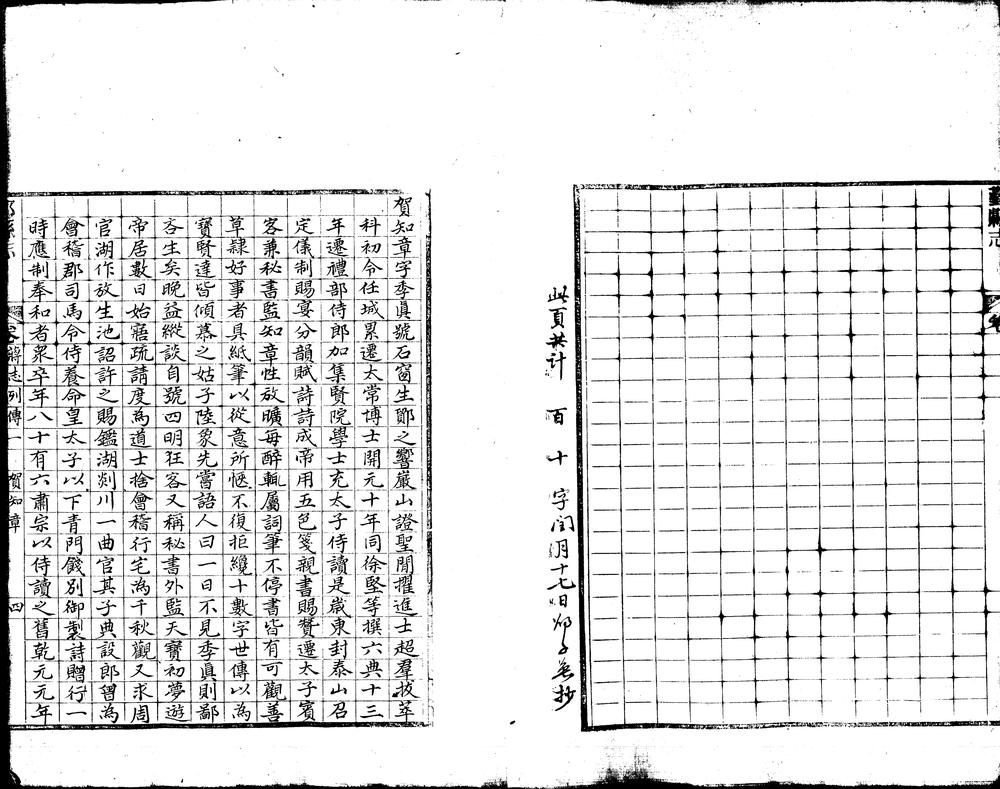 鄞縣志
此頁共計 百 十 字閏月十七日
抄
賀知章字季眞號石窗生鄞之響巖山證聖間擢進士超羣拔萃
科初令任城累遷太常博士開元十年同徐堅等撰六典十三
年遷禮部侍郎加集賢院學士充太子侍讀是歲東封泰山召
定儀制賜宴分韻賦詩詩成帝用五色箋親書賜贊遷太子賓
客兼秘書監知章性放曠每醉輒屬詞筆不停書皆有可觀善
草隸好事者具紙筆以從意所愜不復拒纔十數字世傳以為
寶賢達皆傾慕之姑子陸象先嘗語人曰一日不見季眞則鄙
吝生矣晚益縱誕自號四明狂客又稱秘書外監天寶初夢遊
帝居數日始寤疏請度為道士捨會稽行宅為千秋觀又求周
官湖作放生池詔許之賜鑑湖剡川一曲官其子典設郎曾為
會稽郡司馬令侍養命皇太子以下青門餞別御製詩贈行一
時應制奉和者衆卒年八十有六肅宗以侍讀之舊乾元元年
縣志 列傳一 賀知章 四